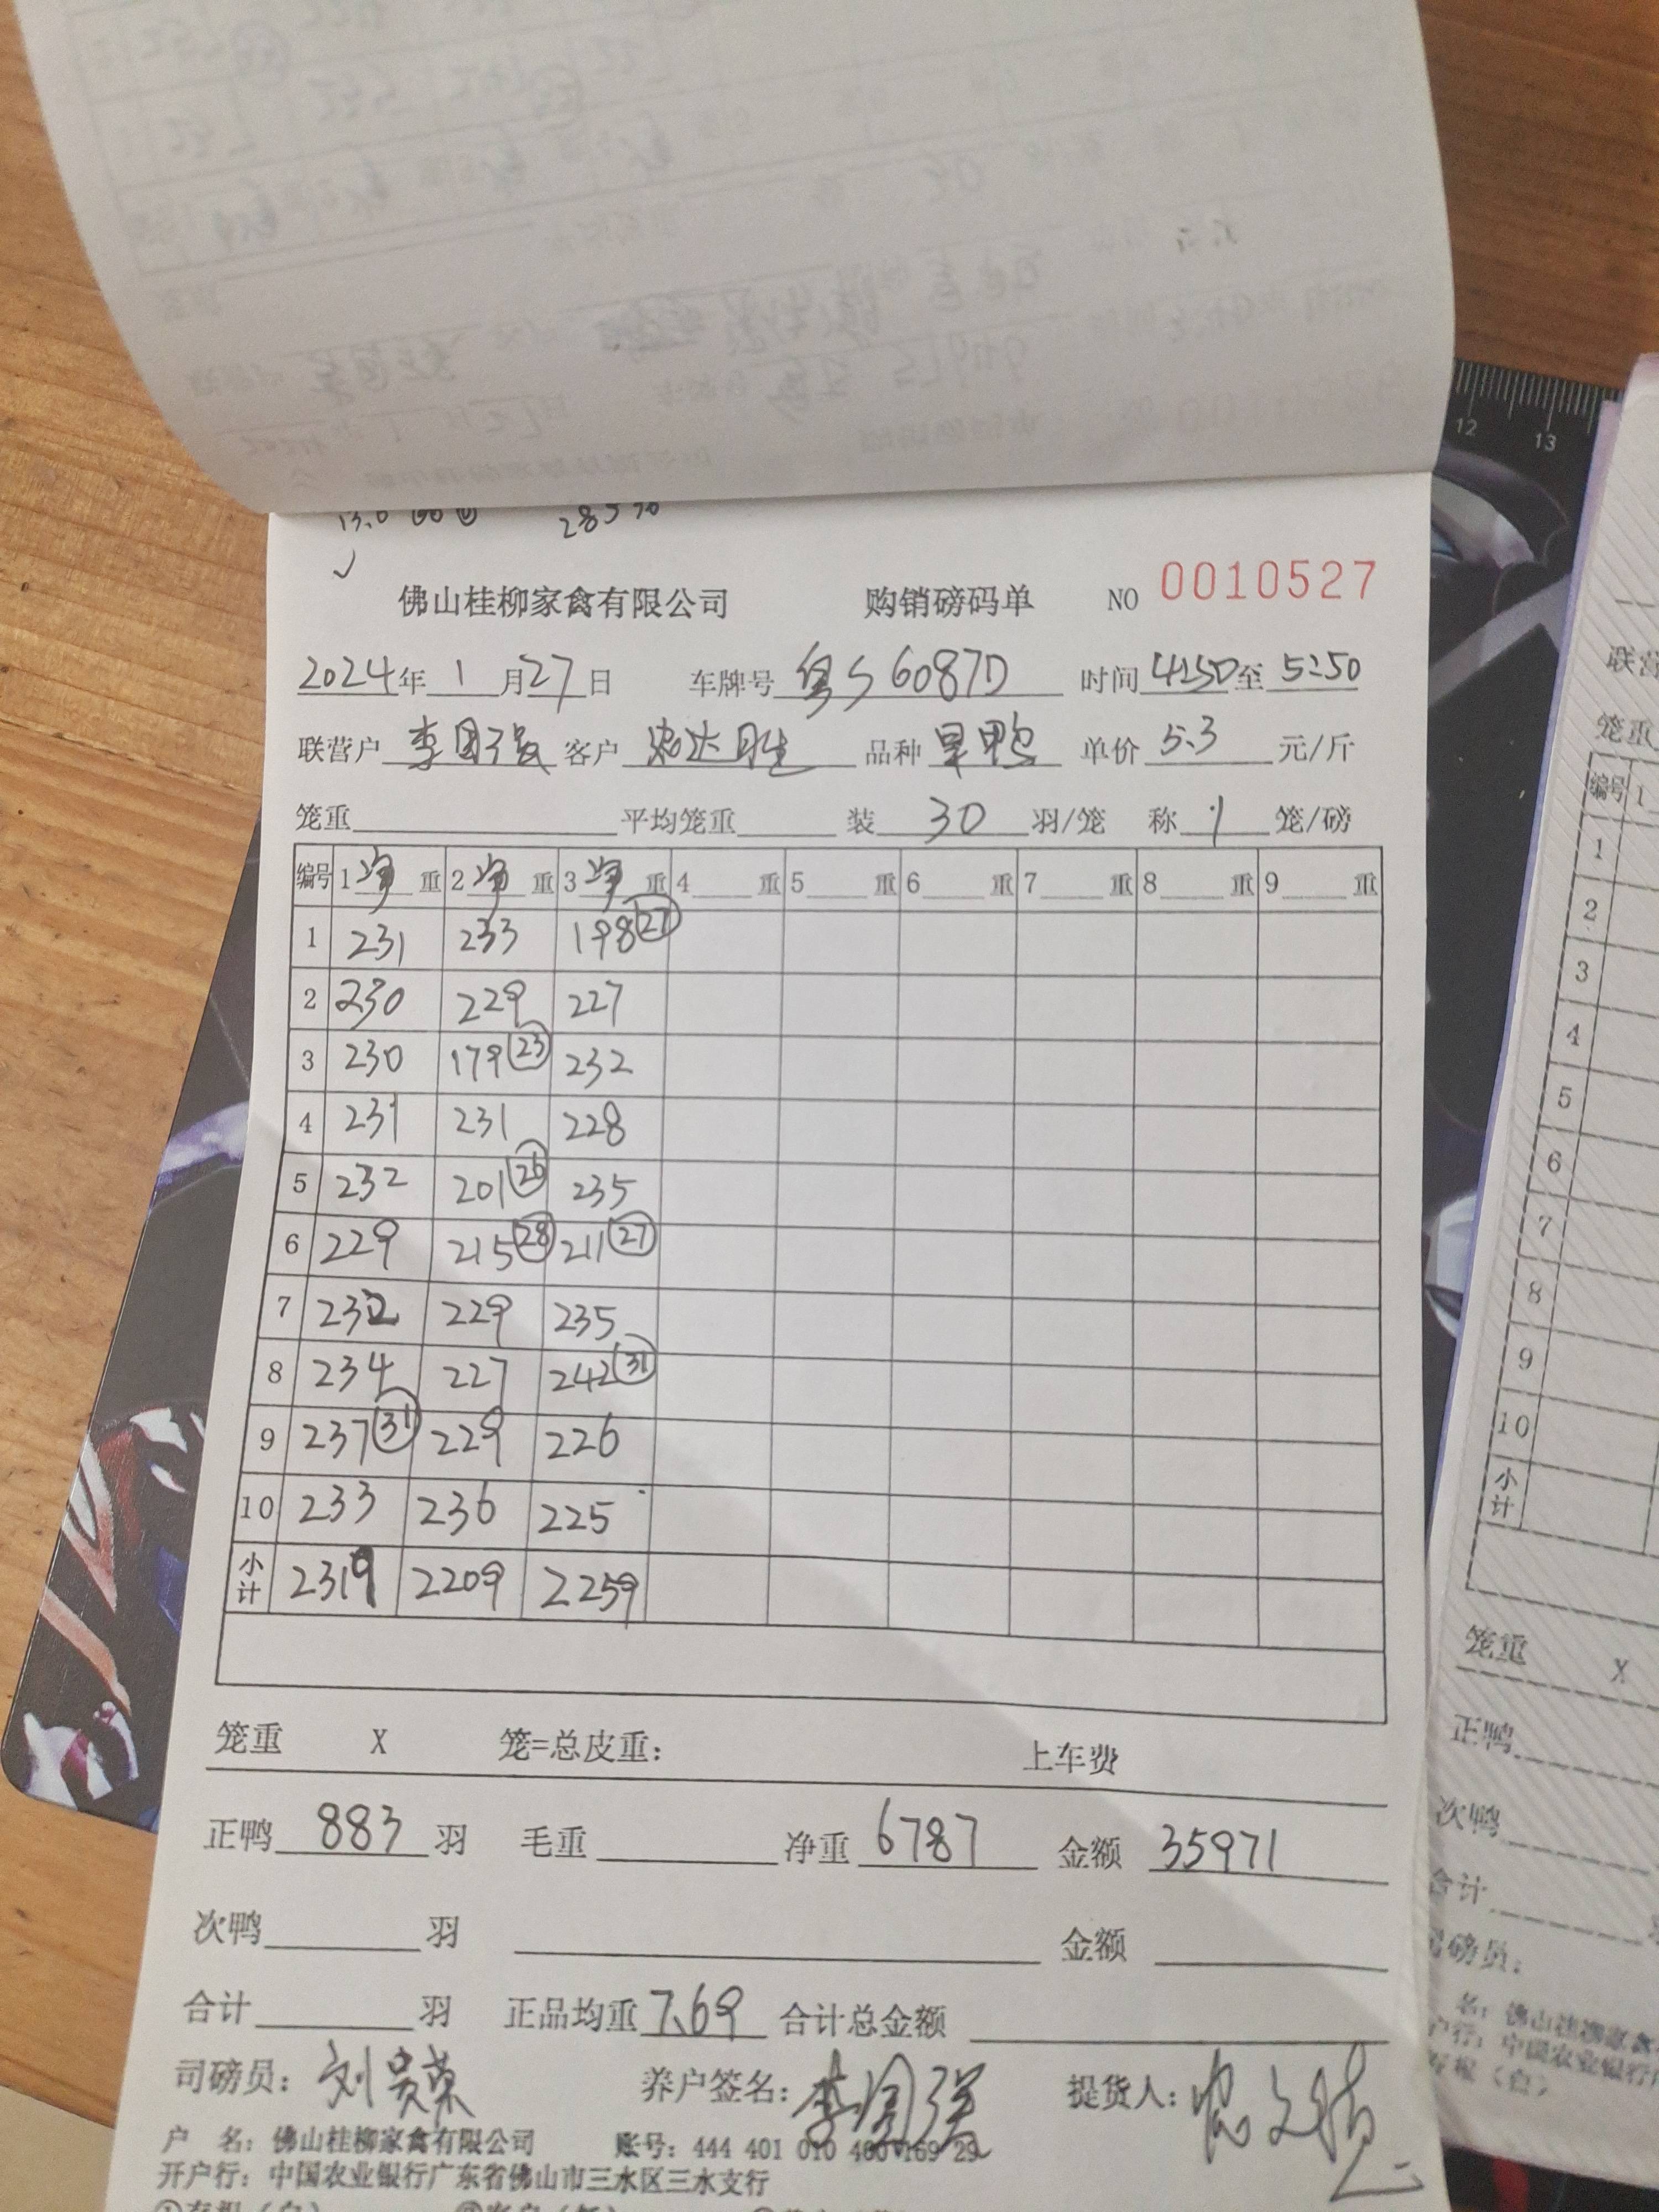 佛山桂柳家禽有限公司 购销磅码单 NO 0010527
2024年1月27日 车牌号 粤S6087D 时间 4:50至5:50
联营户 李国强 客户 品种 旱鸭 单价 5.3 元/斤
笼重 平均笼重 装 30 羽/笼 称 1 笼/磅
编号 1 净 重 2 净 重 3 净 重 4 重 5 重 6 重 7 重 8 重 9 重
1 231 233 198 27
2 230 229 227
3 230 179 23 232
4 231 231 228
5 232 201 26 235
6 229 215 28 211 27
7 232 229 235
8 234 227 242 31
9 237 31 229 226
10 233 236 225
小计 2319 2209 2259
笼重 X 笼=总皮重: 上车费
正鸭 883 羽 毛重 净重 6787 金额 35971
次鸭 羽 金额
合计 羽 正品均重 7.69 合计总金额
司磅员: 养户签名: 李国强 提货人:
户 名: 佛山桂柳家禽有限公司 账号: 444 401 010 400 169 29
开户行: 中国农业银行广东省佛山市三水区三水支行
12 13
联营
笼重
编号 1
1
2
3
4
5
6
7
8
9
10
小计
笼重 X
正鸭
次鸭
合计
磅员:
名: 佛山桂柳家
户行: 中国农业银行